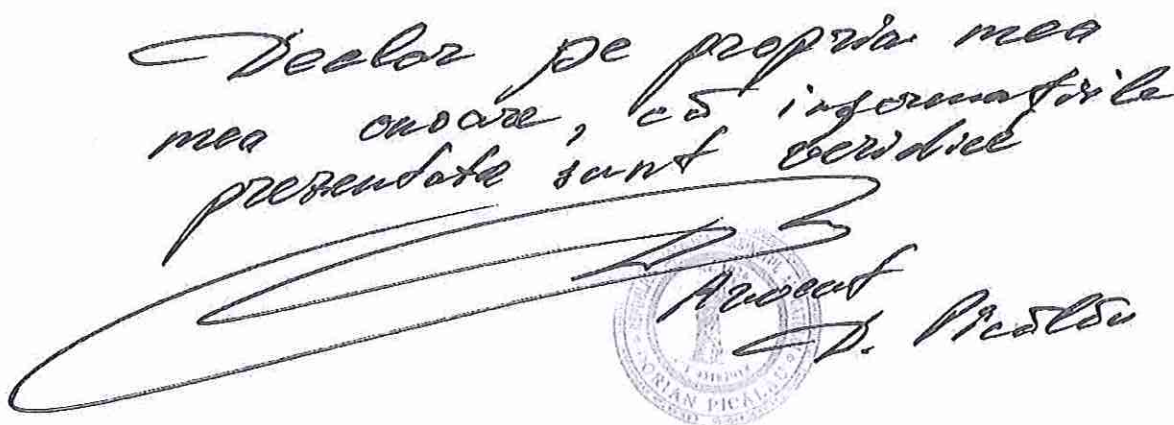 Declar pe propria mea
mea onoare, că informațiile
prezentate sunt veridice
Avocat
D. Picălău
DORIAN PICĂLĂU